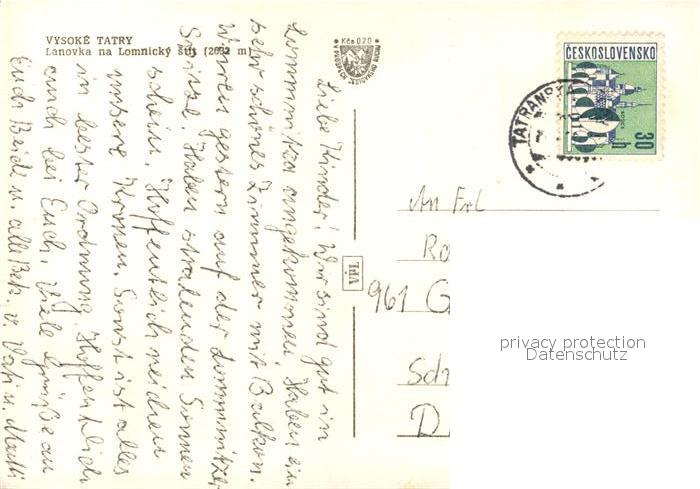 VYSOKÉ TATRY
Lanovka na Lomnický štít (2632 m)
Kčs 0,20
ČESKOSLOVENSKO
30 h
TATRANSKÁ
Liebe Kinder! Wir sind gut in
Lommnitza angekommen. Haben ein
sehr schönes Zimmer mit Balkon.
Waren gestern auf der Lommnitzer
Spitze. Haben stralenden Sonnen
schein. Hoffentlich reichen
unsere Kronen. Sonst ist alles
in bester Ordnung. Hoffentlich
auch bei Euch. Viele Grüße an
Euch Beide u. alle Bek. v. Vati u. Mutti
An Frl
Ro
961 G
Sch
D
privacy protection
Datenschutz